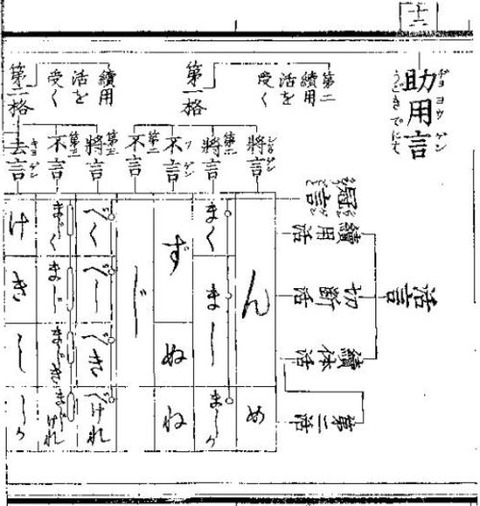 十二
助用言
活言
續用活
切断活
續体活
第二活
第二
續用
活を
受く
第一格
將言
ん
め
第二
將言
まく
まし
ましか
不言
ず
ぬ
ね
第二
不言
じ
續用
活を
受く
第一格
第三
將言
べく
べし
べき
べけれ
第三
不言
まじく
まじ
まじき
まじけれ
去言
け
き
し
しか